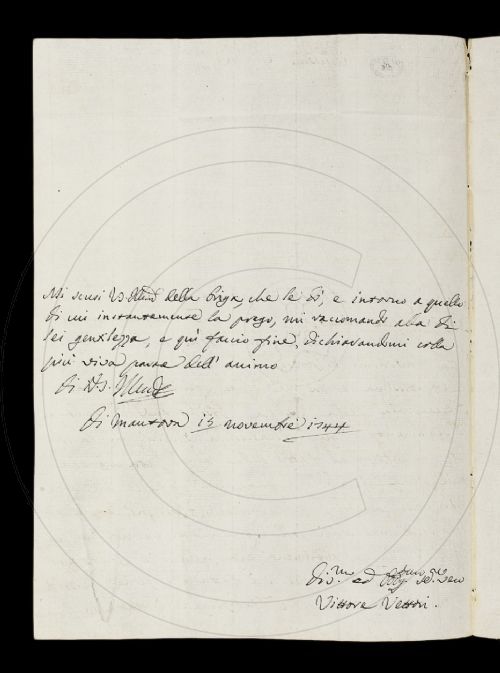 Mi scusi V.S. Illma della briga, che le dò, e intorno a quello
di cui instantemente la prego, mi raccomando alla di
lei gentilezza, e quì faccio fine, dichiarandomi colla
più viva parte dell' animo
Di V.S. Illma
Di Mantova 15 novembre 1744
Div.mo ed Obb.mo
Vittore Vettori.